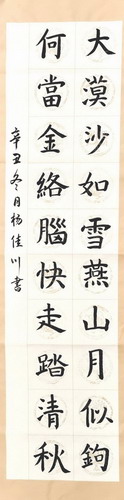 大漠沙如雪燕山月似鉤
何當金絡腦快走踏清秋
辛丑冬月楊佳川書